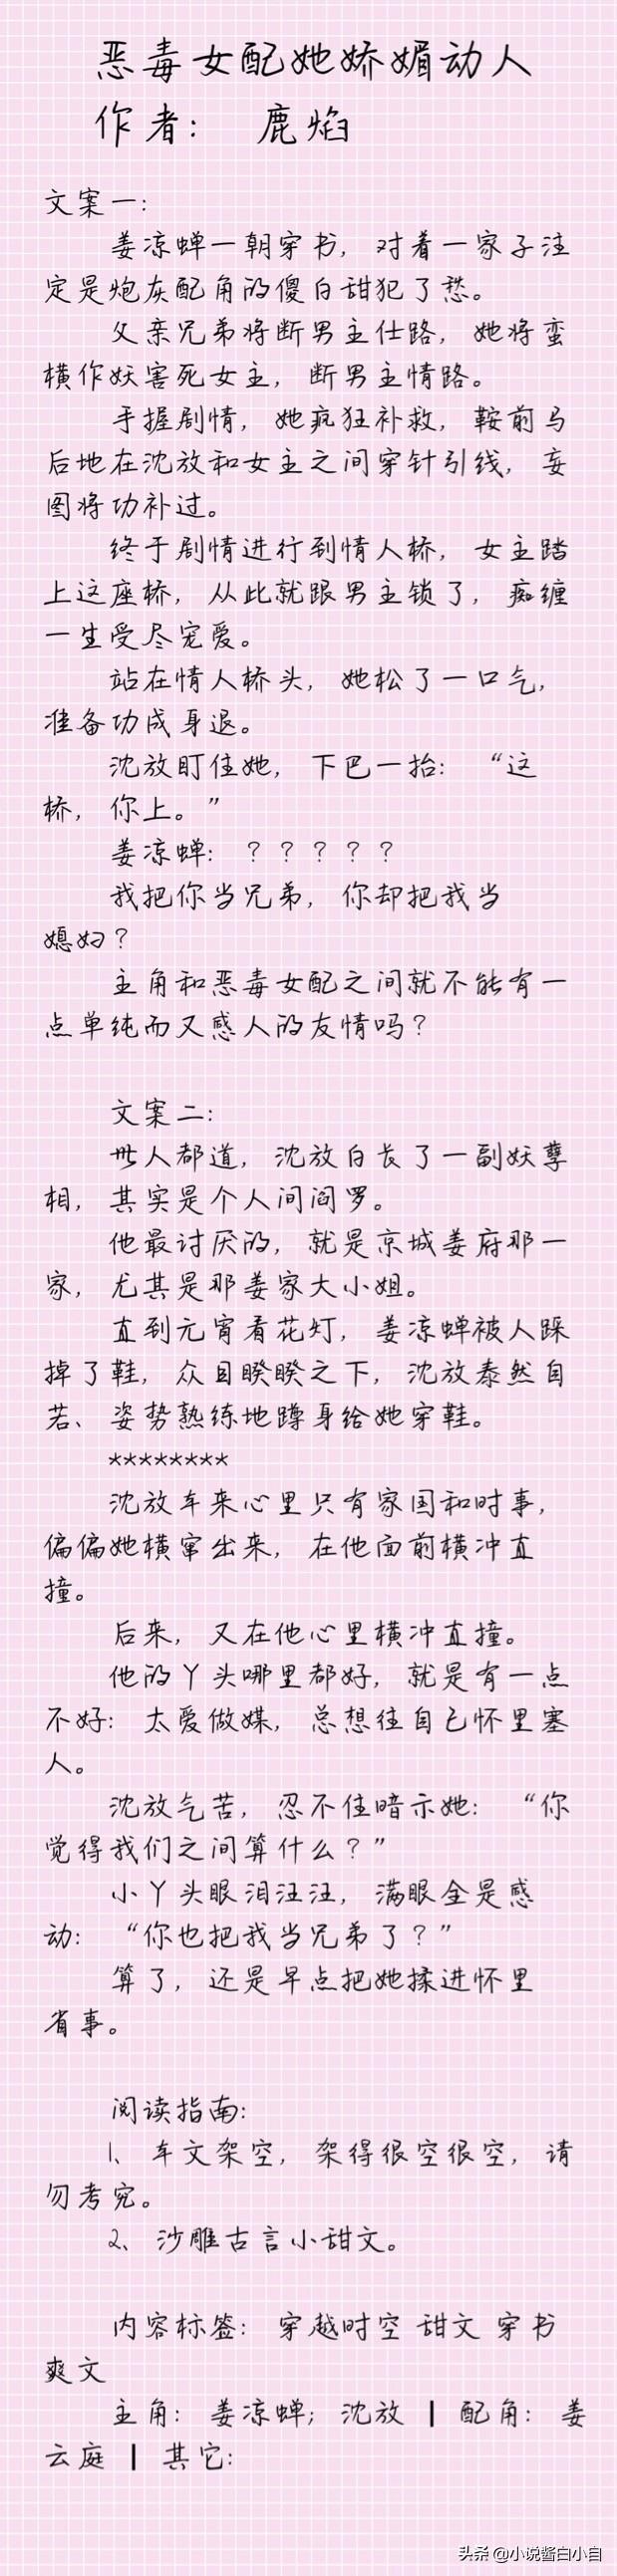 恶毒女配她娇媚动人
作者： 鹿焰
文案一：
姜凉蝉一朝穿书，对着一家子注
定是炮灰配角的傻白甜犯了愁。
父亲兄弟将断男主仕路，她将蛮
横作妖害死女主，断男主情路。
手握剧情，她疯狂补救，鞍前马
后地在沈放和女主之间穿针引线，妄
图将功补过。
终于剧情进行到情人桥，女主踏
上这座桥，从此就跟男主锁了，痴缠
一生受尽宠爱。
站在情人桥头，她松了一口气，
准备功成身退。
沈放盯住她，下巴一抬：“这
桥，你上。”
姜凉蝉：？？？？？
我把你当兄弟，你却把我当
媳妇？
主角和恶毒女配之间就不能有一
点单纯而又感人的友情吗？
文案二：
世人都道，沈放白长了一副妖孽
相，其实是个人间阎罗。
他最讨厌的，就是京城姜府那一
家，尤其是那姜家大小姐。
直到元宵看花灯，姜凉蝉被人踩
掉了鞋，众目睽睽之下，沈放泰然自
若、姿势熟练地蹲身给她穿鞋。
********
沈放本来心里只有家国和时事，
偏偏她横窜出来，在他面前横冲直
撞。
后来，又在他心里横冲直撞。
他的丫头哪里都好，就是有一点
不好：太爱做媒，总想往自己怀里塞
人。
沈放气苦，忍不住暗示她：“你
觉得我们之间算什么？”
小丫头眼泪汪汪，满眼全是感
动：“你也把我当兄弟了？”
算了，还是早点把她揉进怀里
省事。
阅读指南：
1、本文架空，架得很空很空，请
勿考究。
2、沙雕古言小甜文。
内容标签： 穿越时空 甜文 穿书
爽文
主角：姜凉蝉；沈放 ┃ 配角：姜
云庭 ┃ 其它：
头条 @小说酱白小白